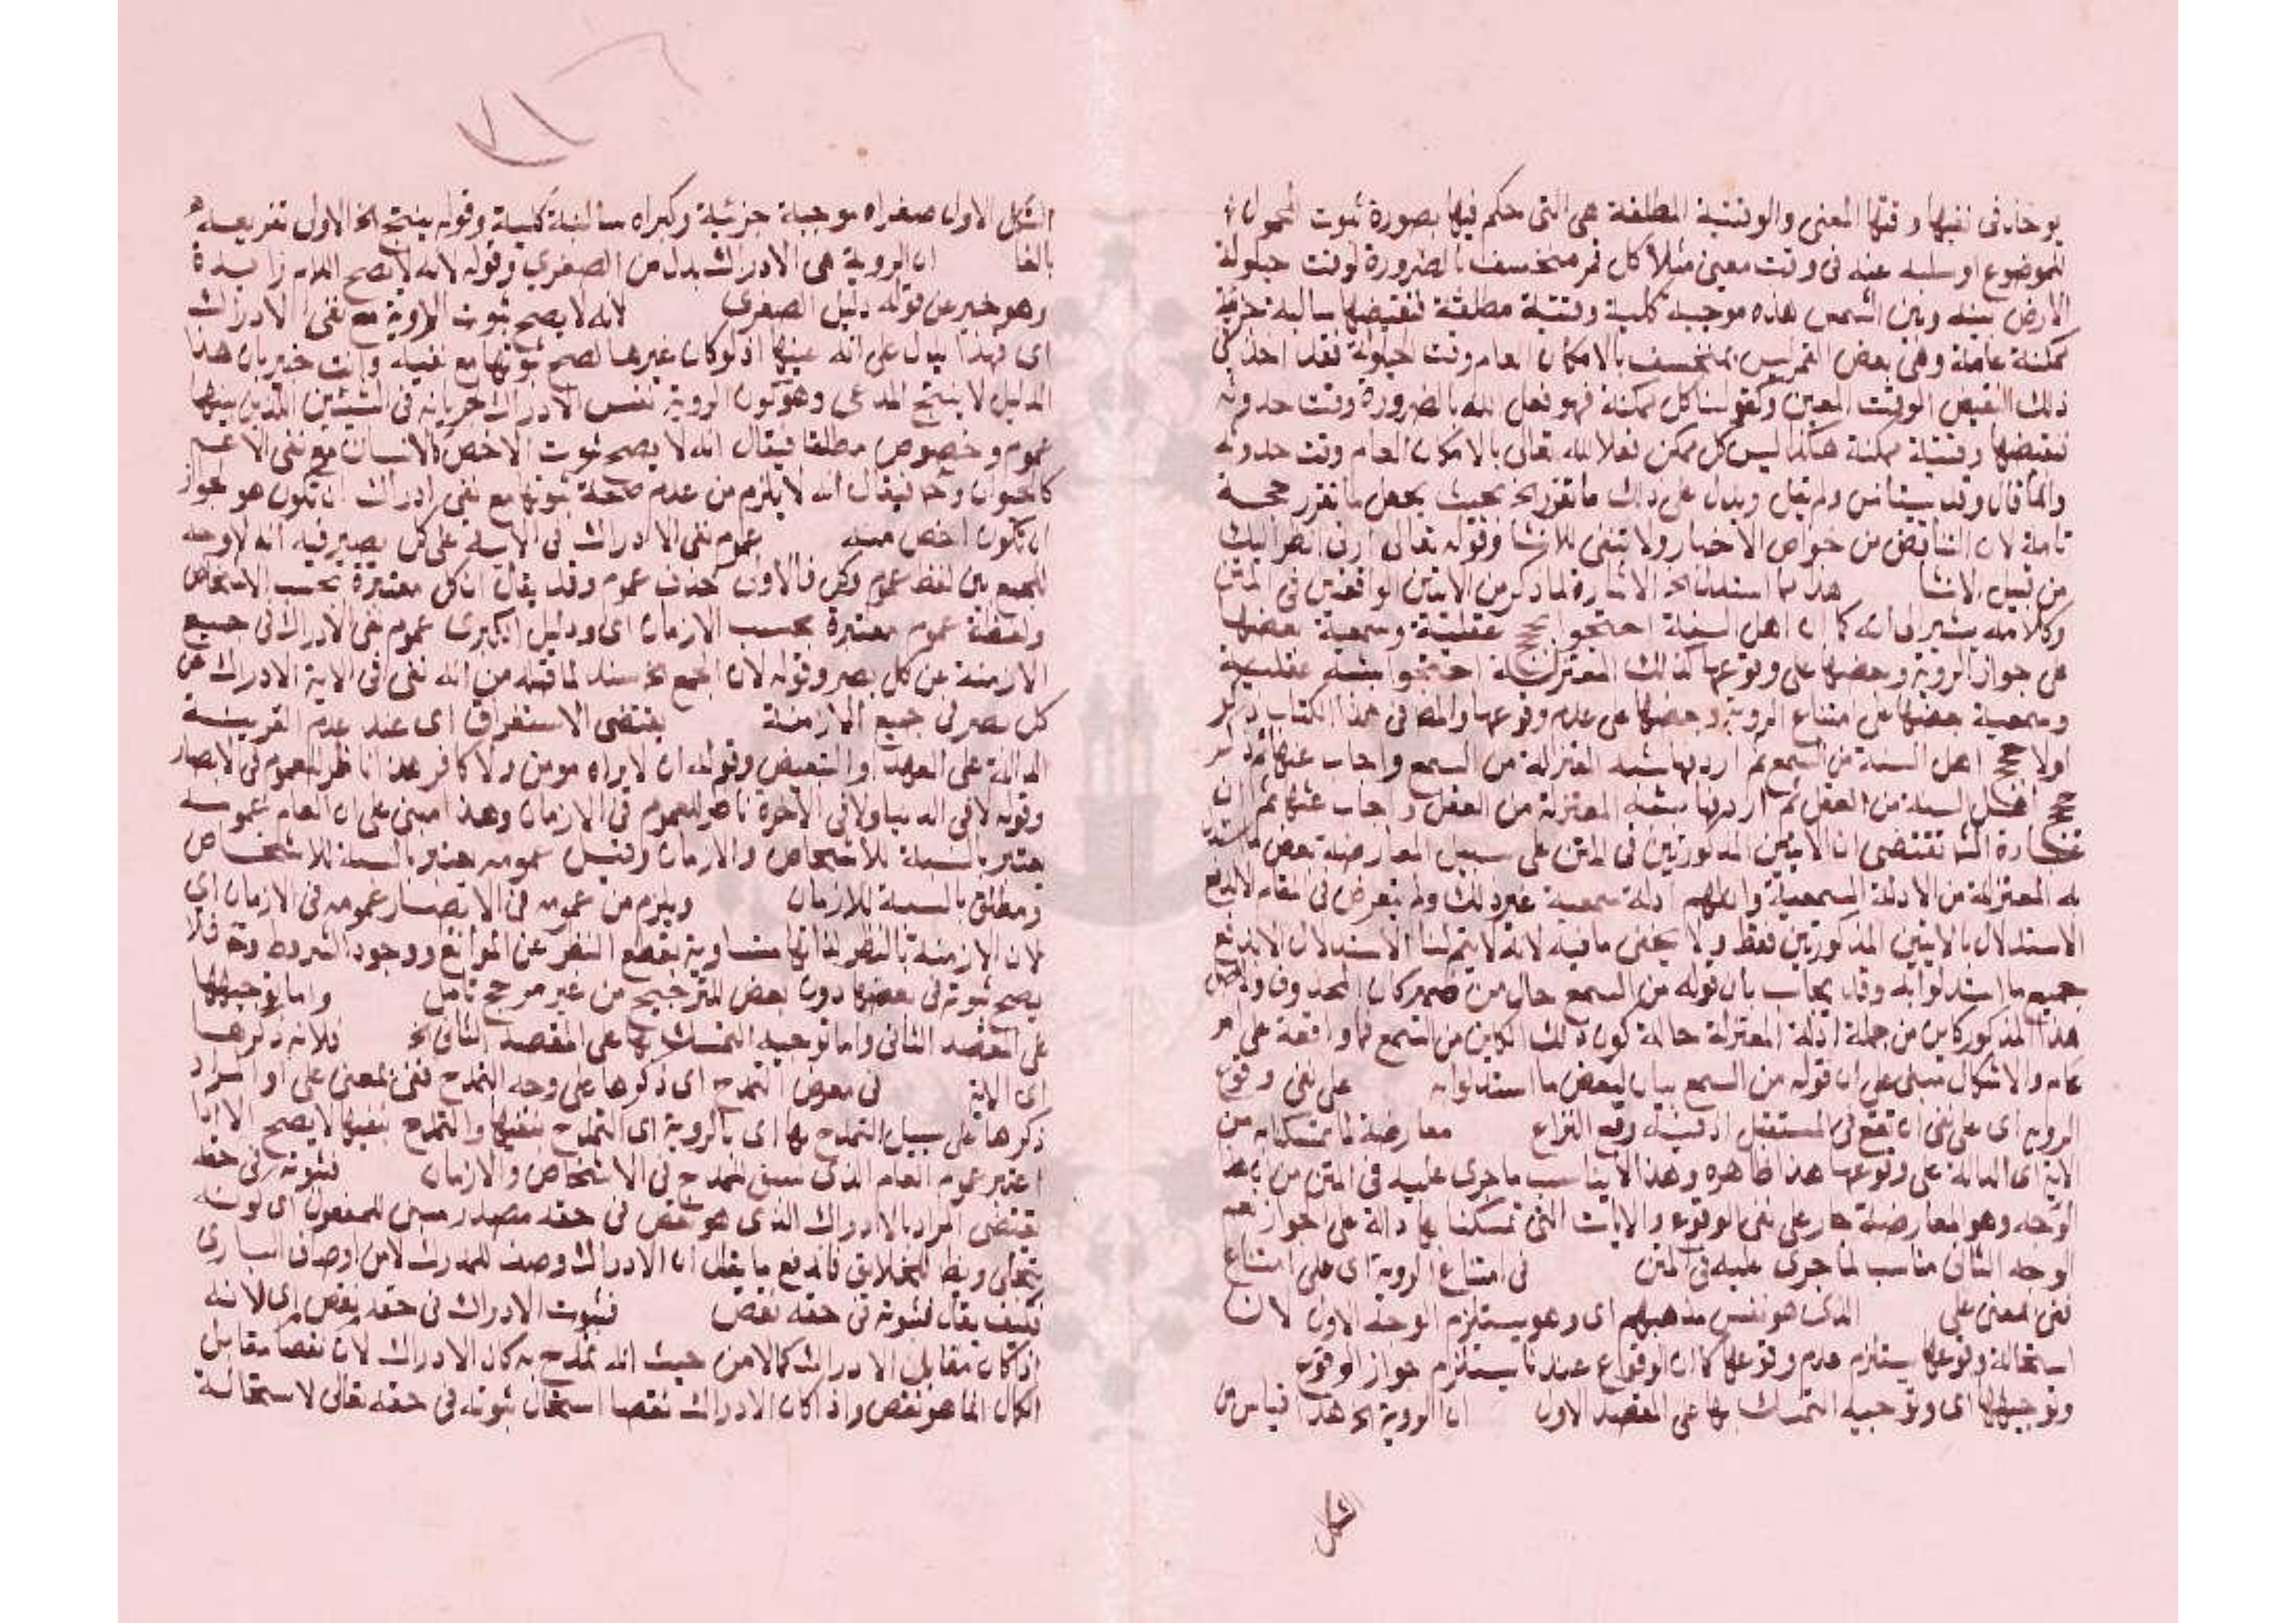 يوخذ في نفيها وقتها المعنى والوقتية المطلقة هي التي حكم فيها بصورة ثبوت المحمول
للموضوع او سلبه عنه في وقت معين مثلا كل قمر منخسف بالضرورة لوقت حيلولة
الارض بينه وبين الشمس هذه موجبة كلية وقتية مطلقة فنقيضها سالبة جزئية
ممكنة عامة وهي بعض القمر ليس بمنخسف بالامكان العام وقت الحيلولة فقد اخذ في
ذلك النقيض الوقت المعين وكقولنا كل ممكنة فهو فعل لله بالضرورة وقت حدوثه
نقيضها وقتية ممكنة هكذا ليس كل ممكن فعلا لله تعالى بالامكان العام وقت حدوثه
وانما قال وقد يستأنس ولم يقل ويدل على ذلك ما تقرر الخ بحيث يجعل ما تقرر حجة
تامة لان التناقض من خواص الاخبار ولا تنفى للانشا وقوله تعالى ارني انظر اليك
من قبيل الانشا هذا ما استدلنا الخ الاشارة لما ذكر من الايتين الواقعتين في المتن
وكلامه يشير الى انه كما ان اهل السنة احتجوا بحجج عقلية وسمعية بعضها
على جواز الروية وبعضها على وقوعها كذلك المعتزلة احتجوا بشبه عقلية
وسمعية بعضها على امتناع الروية وبعضها على عدم وقوعها والمص في هذا الكتاب ذكر
اولا حجج اهل السنة من السمع ثم اردفها بشبه المعتزلة من السمع واجاب عنها ثم ذكر
حجج اهل السنة من العقل ثم اردفها بشبه المعتزلة من العقل واجاب عنها ثم ان
عبارة الش تقتضي ان الايتين المذكورتين في المتن على سبيل المعارضة بعض ما استدل
به المعتزلة من الادلة السمعية وان لهم ادلة سمعية غير ذلك ولم يتعرض في المقام لا لدفع
الاستدلال بالايتين المذكورتين فقط ولا يخفى ما فيه لانه لا يتم لنا الاستدلال الا بدفع
جميع ما استدلوا به وقد يجاب بان قوله من السمع حال من ضمير كان المحذوف والاصل
هذا المذكور كاين من جملة ادلة المعتزلة حالة كون ذلك الكاين من السمع فما واقعة على
عام والاشكال مبني على ان قوله من السمع بيان لبعض ما استدلوا به على نفي وقوع
الروية اى على نفى ان تقع في المستقبل اذ فيه وقع النزاع معارضة لما تمسكنا به من
الاية اى الدالة على وقوعها هذا ظاهره وهذا لا يناسب ما جرى عليه في المتن من
اوجه وهو معارضة جار على نفي الوقوع والايات التي تمسكنا بها دالة على الجواز نعم
الوجه الثاني مناسب لما جرى عليه في المتن في امتناع الروية اى على امتناع
نفى المعنى على الذى هو نفس مذهبهم اى وهو يستلزم الوجه الاول لان
استحالة وقوعها يستلزم عدم وقوعها كما ان الوقوع عندنا يستلزم جواز الوقوع
وتوجيهها اى وتوجيه التمسك بها على المقصد الاول ان الروية الخ هذا قياس من
الشكل
الشكل الاول صغراه موجبة جزئية وكبراه سالبة كلية وقوله ينتج الخ الاولى تفريعه
بالفا ان الروية هي الادراك بدل من الصغرى وقوله لانه لا يصح اللام زايدة
وهو خبر عن قوله دليل الصغرى لانه لا يصح ثبوت الروية مع نفي الادراك
اى فهذا يدل على انه عينها اذ لو كان غيرها لصح ثبوتها مع نفيه وانت خبير بان هذا
الدليل لا ينتج المدعى وهو كون الروية نفس الادراك لجريانه في الشيئين اللذين بينهما
عموم وخصوص مطلقا فيقال انه لا يصح ثبوت الاخص كالانسان مع نفي الاعم
كالحيوان وح فيقال انه لا يلزم من عدم صحة ثبوتها مع نفي ادراك ان تكون هو لجواز
ان تكون اخص منه عموم نفي الادراك في الاية على كل بصير فيه انه لا وجه
للجمع بين لفظ عموم وكل فالاولى حذف عموم وقد يقال ان كل معتبرة بحسب الاشخاص
ولفظة عموم معتبرة بحسب الازمان اى ودليل الكبرى عموم نفي الادراك في جميع
الازمنة عن كل بصير وقوله لان الجمع الخ سند لما قبله من انه نفى في الاية الادراك عن
كل بصير في جميع الازمنة يقتضي الاستغراق اى عند عدم القرينة
الدالة على العهد او التبعيض وقوله ان لا يراه مومن ولا كافر هذا ناظر للعموم في الابصار
وقوله لا في الدنيا ولا في الاخرة ناظر للعموم في الازمان وهذا مبني على ان العام عمومه
معتبر بالنسبة للاشخاص والازمان وقيل عمومه معتبر بالنسبة للاشخاص
ومطلق بالنسبة للازمان ويلزم من عمومه في الابصار عمومه في الازمان اى
لان الازمنة بالنظر لذاتها متساوية بقطع النظر عن الموانع ووجود الشروط وح فلا
يصح ثبوته في بعضها دون بعض للترجيح من غير مرجح تامل واما توجيهها
على المقصد الثاني واما توجيه التمسك بها على المقصد الثاني الخ فلانه ذكرها
اى الاية في معرض التمدح اى ذكرها على وجه التمدح ففي بمعنى على او المراد
ذكرها على سبيل التمدح بها اى بالروية اى التمدح بنفيها والتمدح بنفيها لا يصح الا اذا
اعتبر عموم العام الذى سيق للمدح في الاشخاص والازمان فثبوته في حقه
يقتضي المراد بالادراك الذى هو نقص في حقه مصدر مبني للمفعول اى كونه
يتجلى ويظهر للخلايق فاندفع ما يقال ان الادراك وصف للمدرك لا من اوصاف البارى
فكيف يقال فثبوته في حقه نقص فثبوت الادراك في حقه نقص اى لانه
اذ كان مقابل الادراك كمالا من حيث انه تمدح به كان الادراك لان نقصا مقابل
الكمال انما هو نقص واذا كان الادراك نقصا استحال ثبوته في حقه تعالى لاستحالة